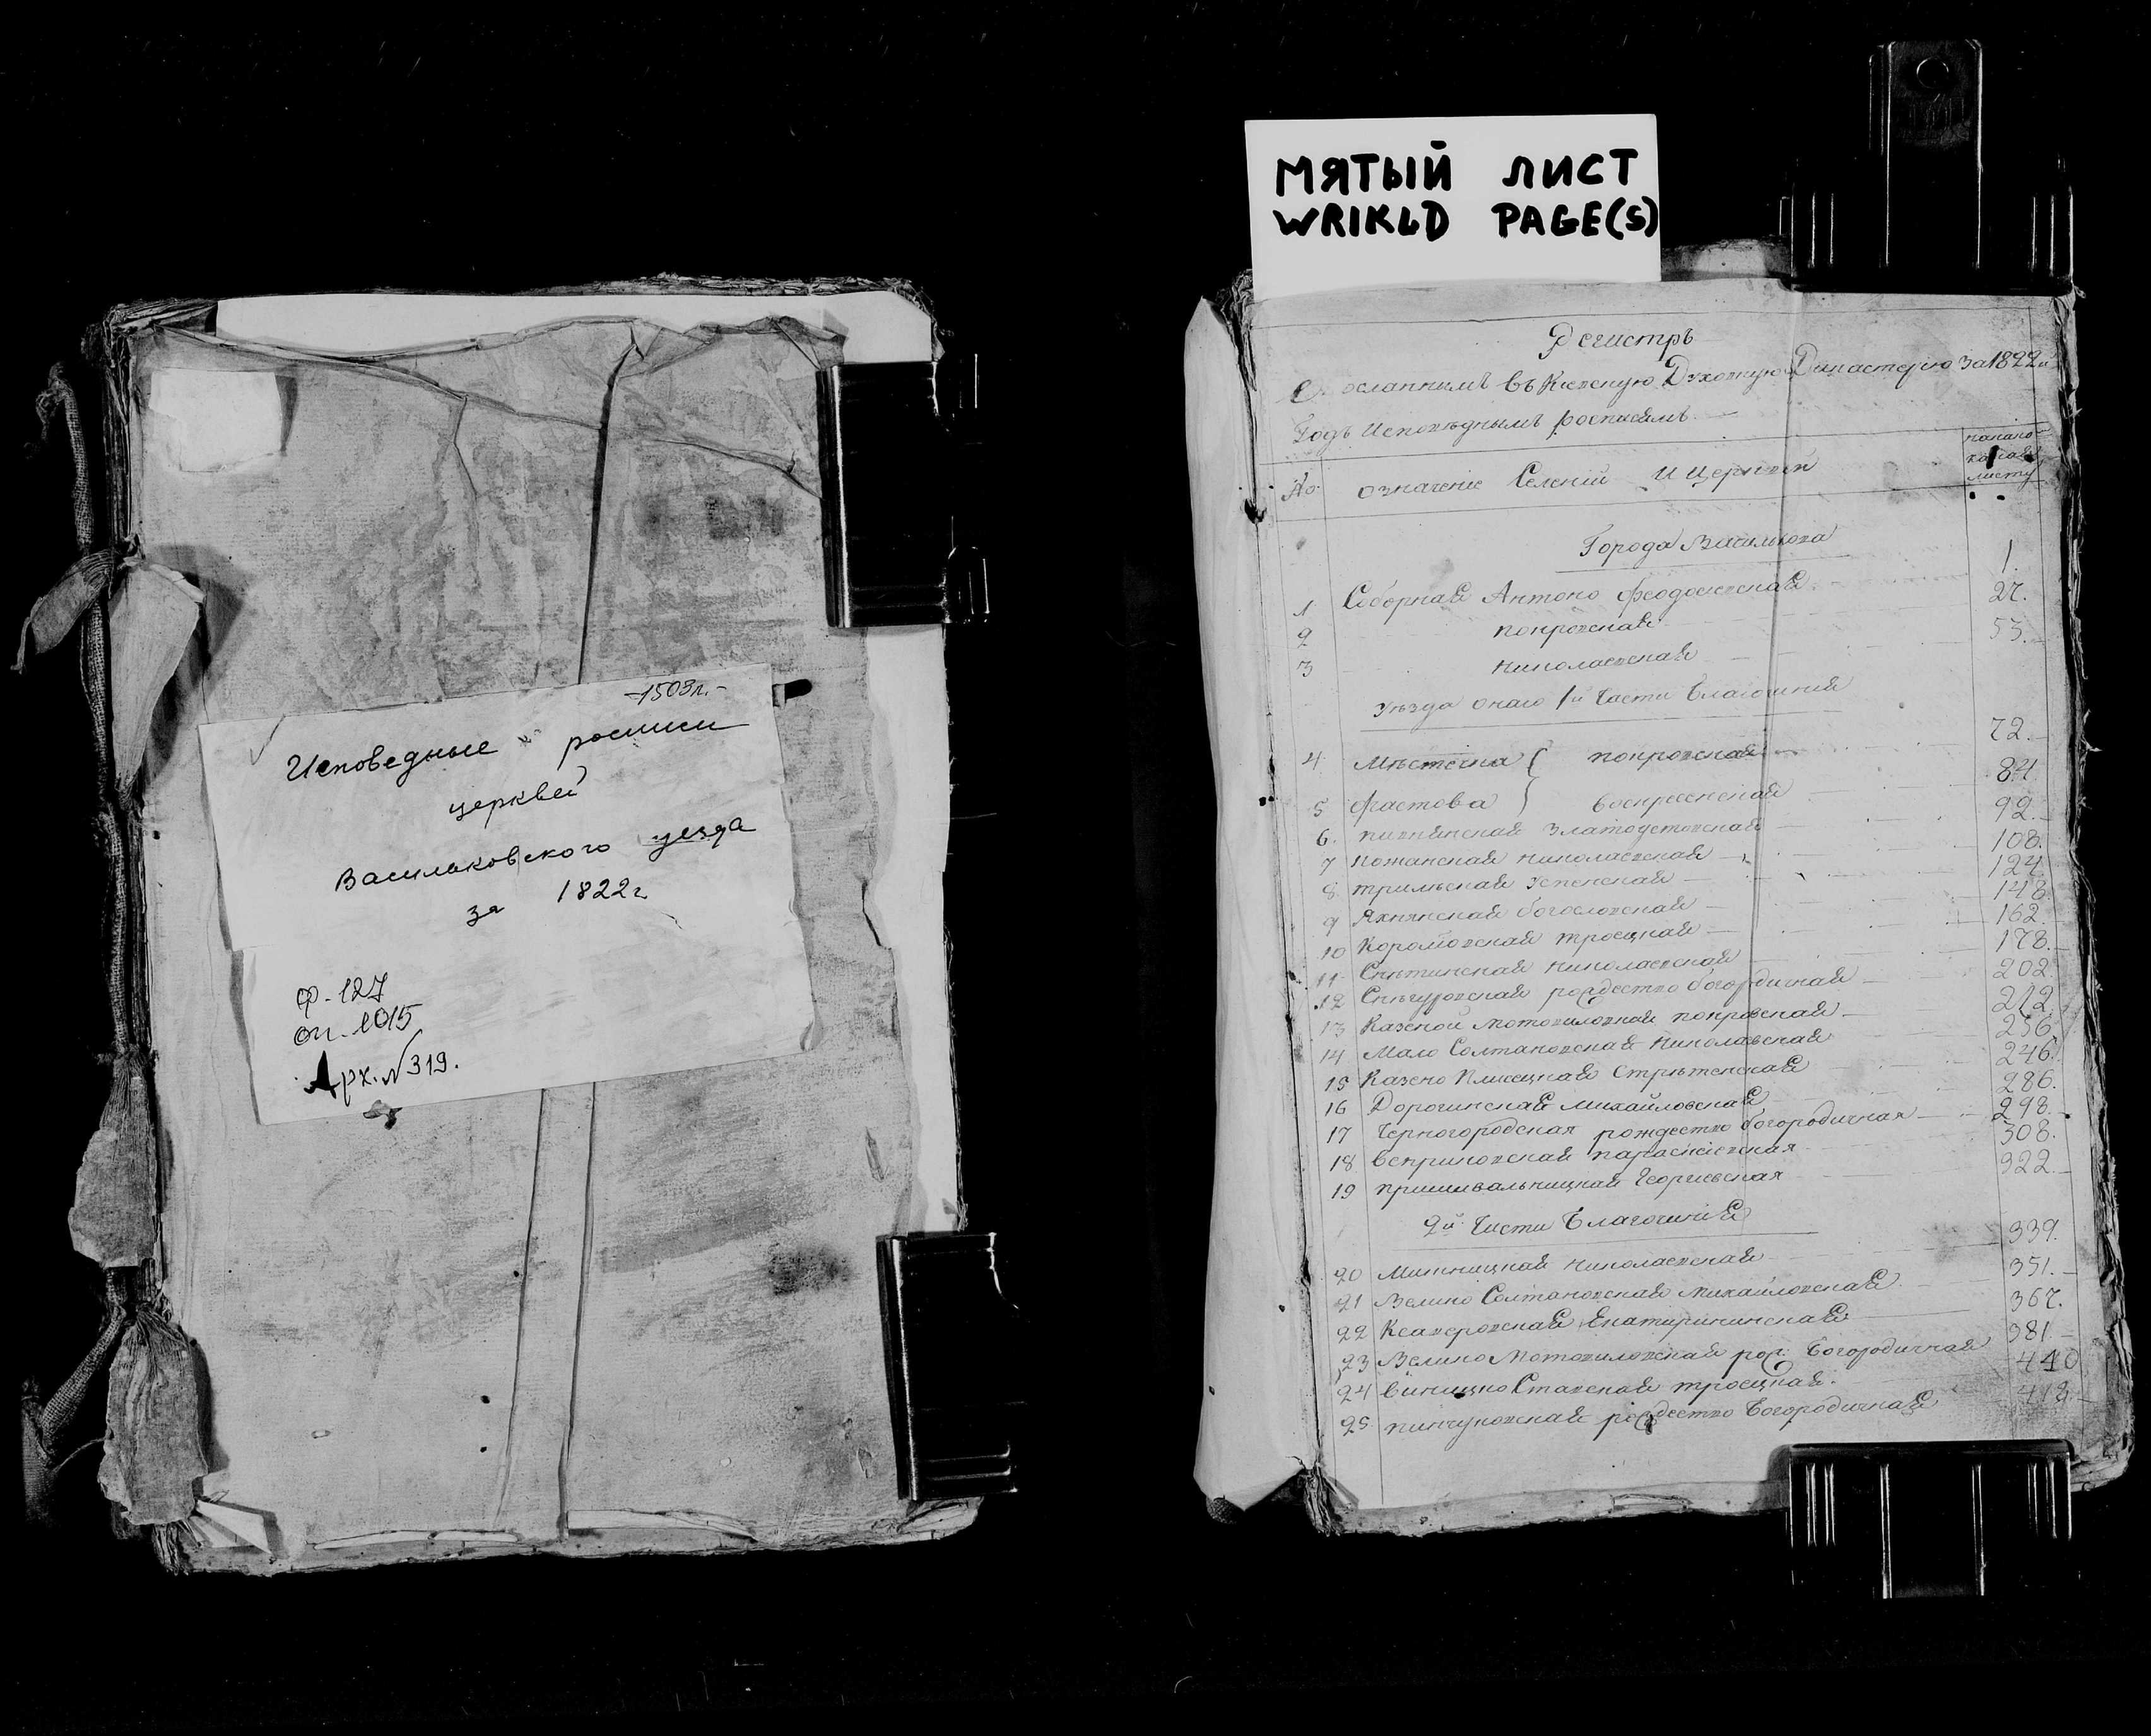 -1503л.-
Исповедные росписи
церквей
Васильковского уезда
за 1822г
ф. 127
оп. 1015
Арх. N 319.
МЯТЫЙ ЛИСТ
WRIKLD PAGE(S)
Регистръ
осланнымъ въ Киевскую Духовную Дикастерію за 1822й
Годъ Исповѣднымъ росписямъ
No означеніе Селеній И Церквей листу
Города Василькова
1 Соборная Антоно Феодосіевская 1.
2 покровская 27.
3 николаевская 53.
уѣзда онаго 1й Части Благочинія
4 Мѣстечка покровская 72.
5 фастова воскресенская 84.
6. пивнинская Златоустовская 92.
7 кожанская николаевская 108.
8. трилѣская успенская 124.
9 яхнянская богословская 148.
10 троецкая 162.
11. Снѣтинская николаевская 178.
12 рождество богородичная 202.
13 Казеной мотовиловкой покровская 212.
14 Мало Солтановская николаевская 236.
15 Казено Плисецкая Стрѣтенская 246.
16 Дорогинская михайловская 286.
17 Черногородская рождество богородичная 298.
18 веприковская параскіевская 308.
19 пришивальницкая Георгіевская 322.
2й Части Благочинія
20 Митницкая николаевская 339.
21 Велико Солтановская михайловская 351.
22 Ксаверовская Екатирининская 367.
23 Велико Мотовиловская рож: Богородичная 381.
24 виницко Ставская троецкая. 410
25 пинчуковская рождество Богородичная 418.